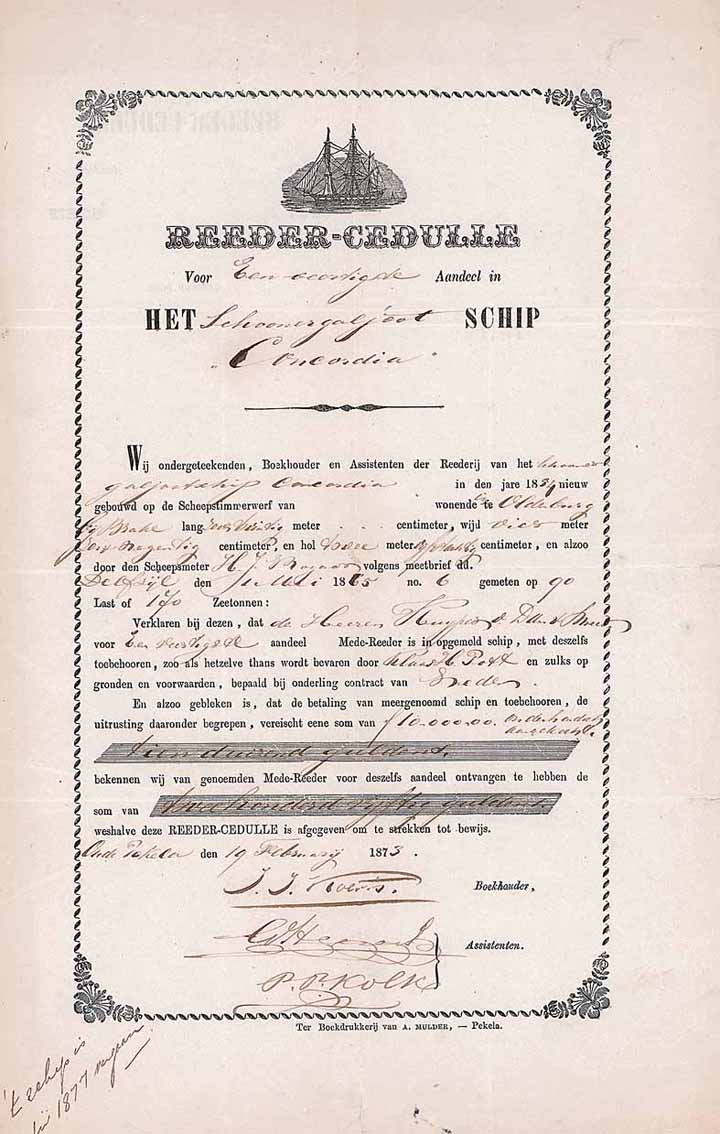 REEDER-CEDULLE
Voor Een veertigste Aandeel in
HET Schoonergaljoot SCHIP
„Concordia"
Wij ondergeteekenden, Boekhouder en Assistenten der Reederij van het Schooner
galjootschip Concordia in den jare 18 nieuw
gebouwd op de Scheepstimmerwerf van wonende te Oldeburg
bij Brake lang meter . . centimeter, wijd vier meter
negentig centimeter, en hol twee meter centimeter, en alzoo
door den Scheepsmeter H. J. volgens meetbrief dd.
Delfzijl den Mei 1865 no. 6 gemeten op 90
Last of 170 Zeetonnen:
Verklaren bij dezen, dat de Heeren
voor Een veertigste aandeel Mede-Reeder is in opgemeld schip, met deszelfs
toebehooren, zoo als hetzelve thans wordt bevaren door Klaas H. Pott en zulks op
gronden en voorwaarden, bepaald bij onderling contract van Reeders.
En alzoo gebleken is, dat de betaling van meergenoemd schip en toebehooren, de
uitrusting daaronder begrepen, vereischt eene som van f 10.000.00.
tien duizend guldens.
bekennen wij van genoemden Mede-Reeder voor deszelfs aandeel ontvangen te hebben de
som van twee honderd vijftig guldens
weshalve deze REEDER-CEDULLE is afgegeven om te strekken tot bewijs.
Oude Pekela den 19 Februarij 1873.
J. J. Boekhouder,
Assistenten.
P. P. Kolk
Ter Boekdrukkerij van A. MULDER, — Pekela.
't schip is
in 1877 vergaan